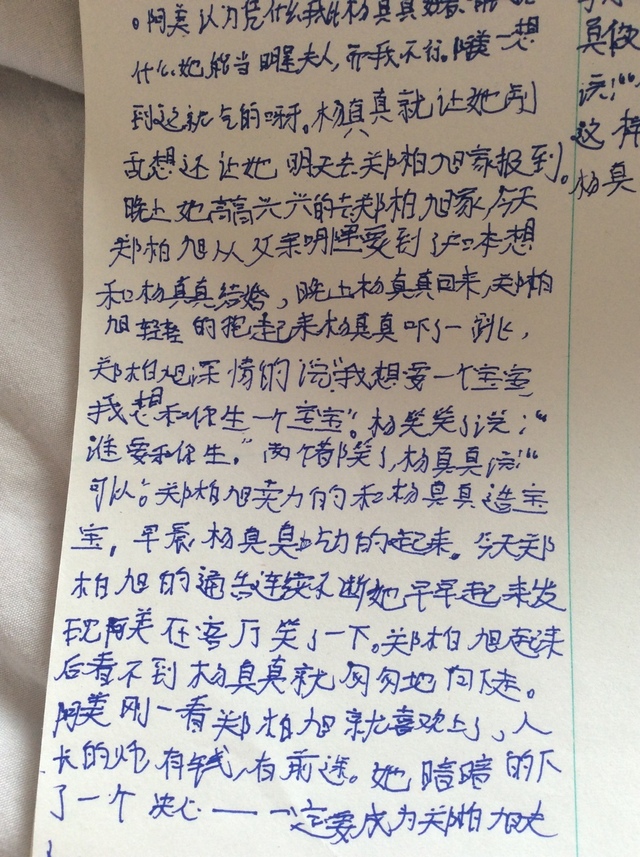 。阿美认为凭什么我比杨真真
什么她能当明星夫人,而我不行。阿美一想
到这就气的呀。杨真真就让她别
乱想还让她明天去郑柏旭家报到。
晚上她高高兴兴的去郑柏旭家,今天
郑柏旭从父亲明里受到了本想
和杨真真结婚,晚上杨真真回来,郑柏
旭轻轻的抱起来杨真真吓了一跳,
郑柏旭深情的说“我想要一个宝宝
我想和你生一个宝宝”。杨笑笑了说:“
谁要和你生。”两个都笑了,杨真真说:“
可以”。郑柏旭卖力的和杨真真造宝
宝,早晨杨真真的起来。今天郑
柏旭的通告连续不断她早早起来发
现阿美在客厅笑了一下。郑柏旭起来
后看不到杨真真就匆匆地向下走。
阿美刚一看郑柏旭就喜欢上了,人
长的帅有钱,有前途。她暗暗的下
了一个决心——一定要成为郑柏旭夫
真
说:“
这样
杨真